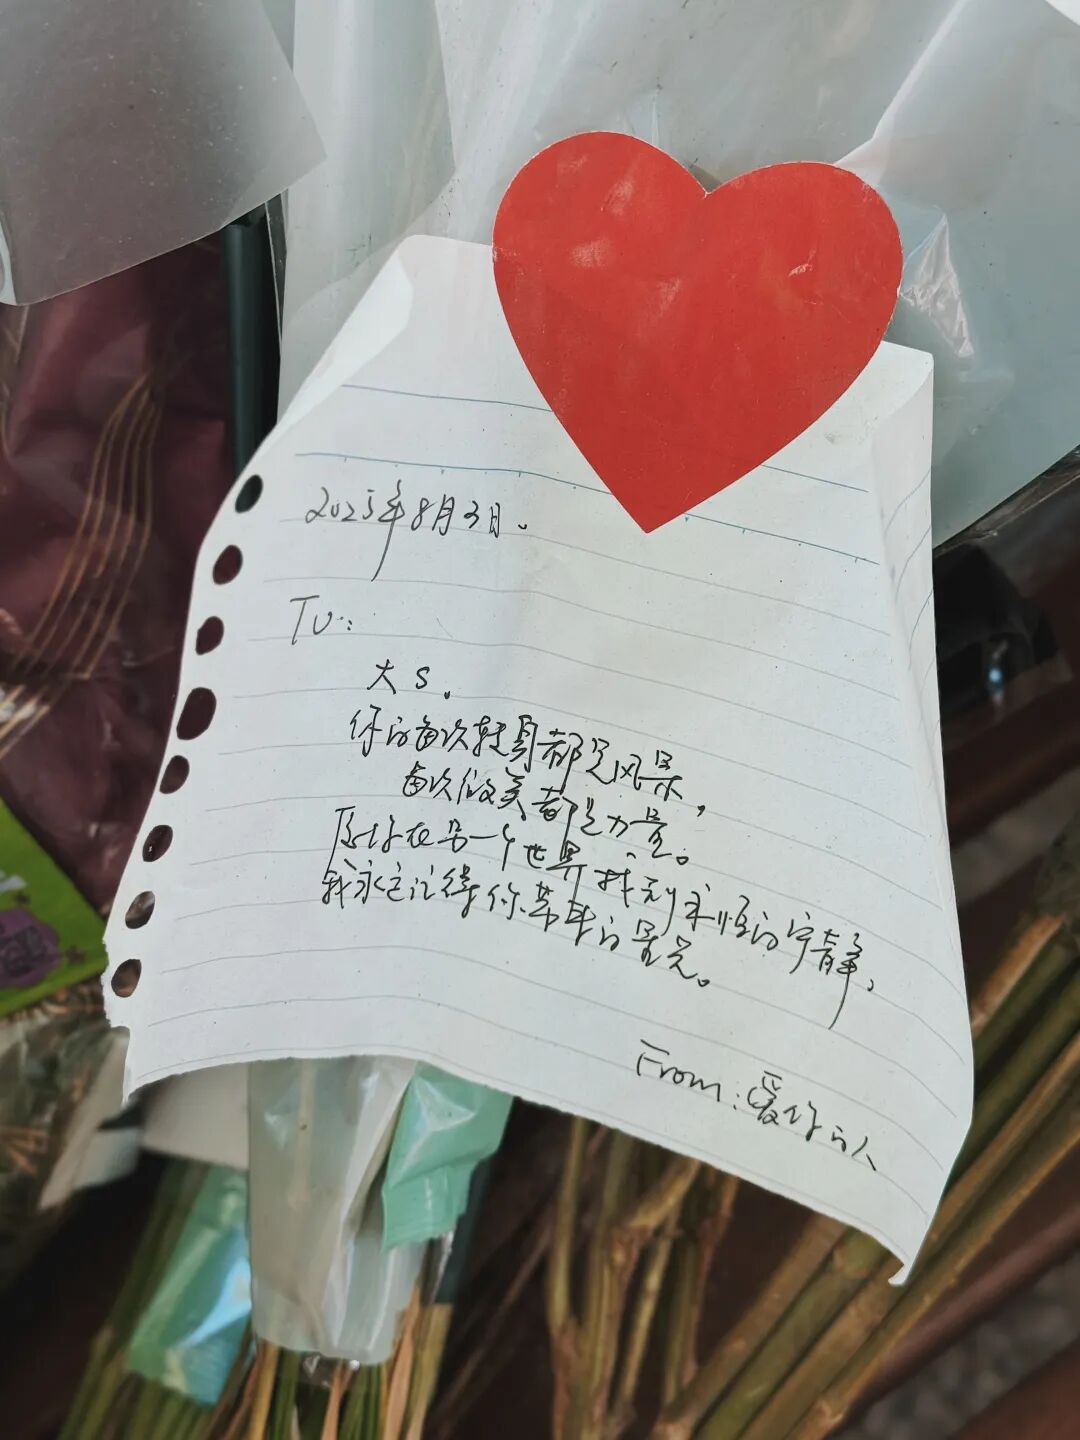 2025年8月3日。
To:
大S。
你的每次转身都是风景,
每次微笑都是力量。
愿你在另一个世界找到永恒的宁静,
我永远记得你带来的星光。
From:爱你的人